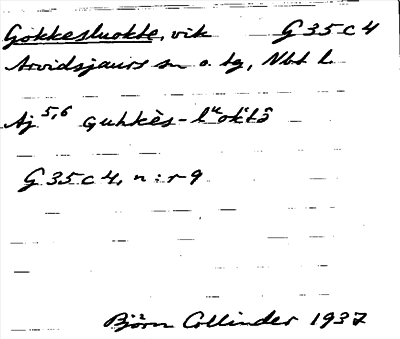 Gokkesluokte, vik G 35 c 4
Arvidsjaurs sn o. tg, Nbt l.
Aj 5,6 guhkès-luoktâ
G 35 c 4, n:r 9
Björn Collinder 1937